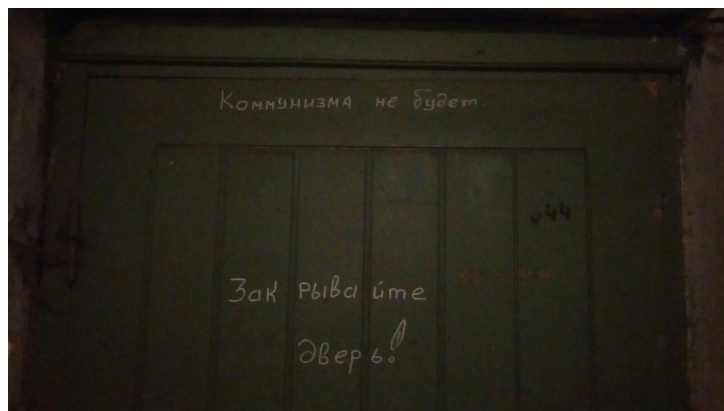 Коммунизма не будет.
№44
Закрывайте
дверь!